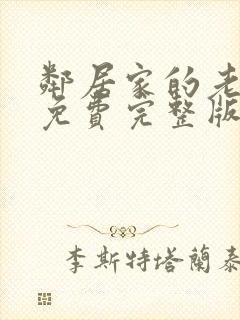 鄰居家的老
免費完整版
李斯特塔蘭泰